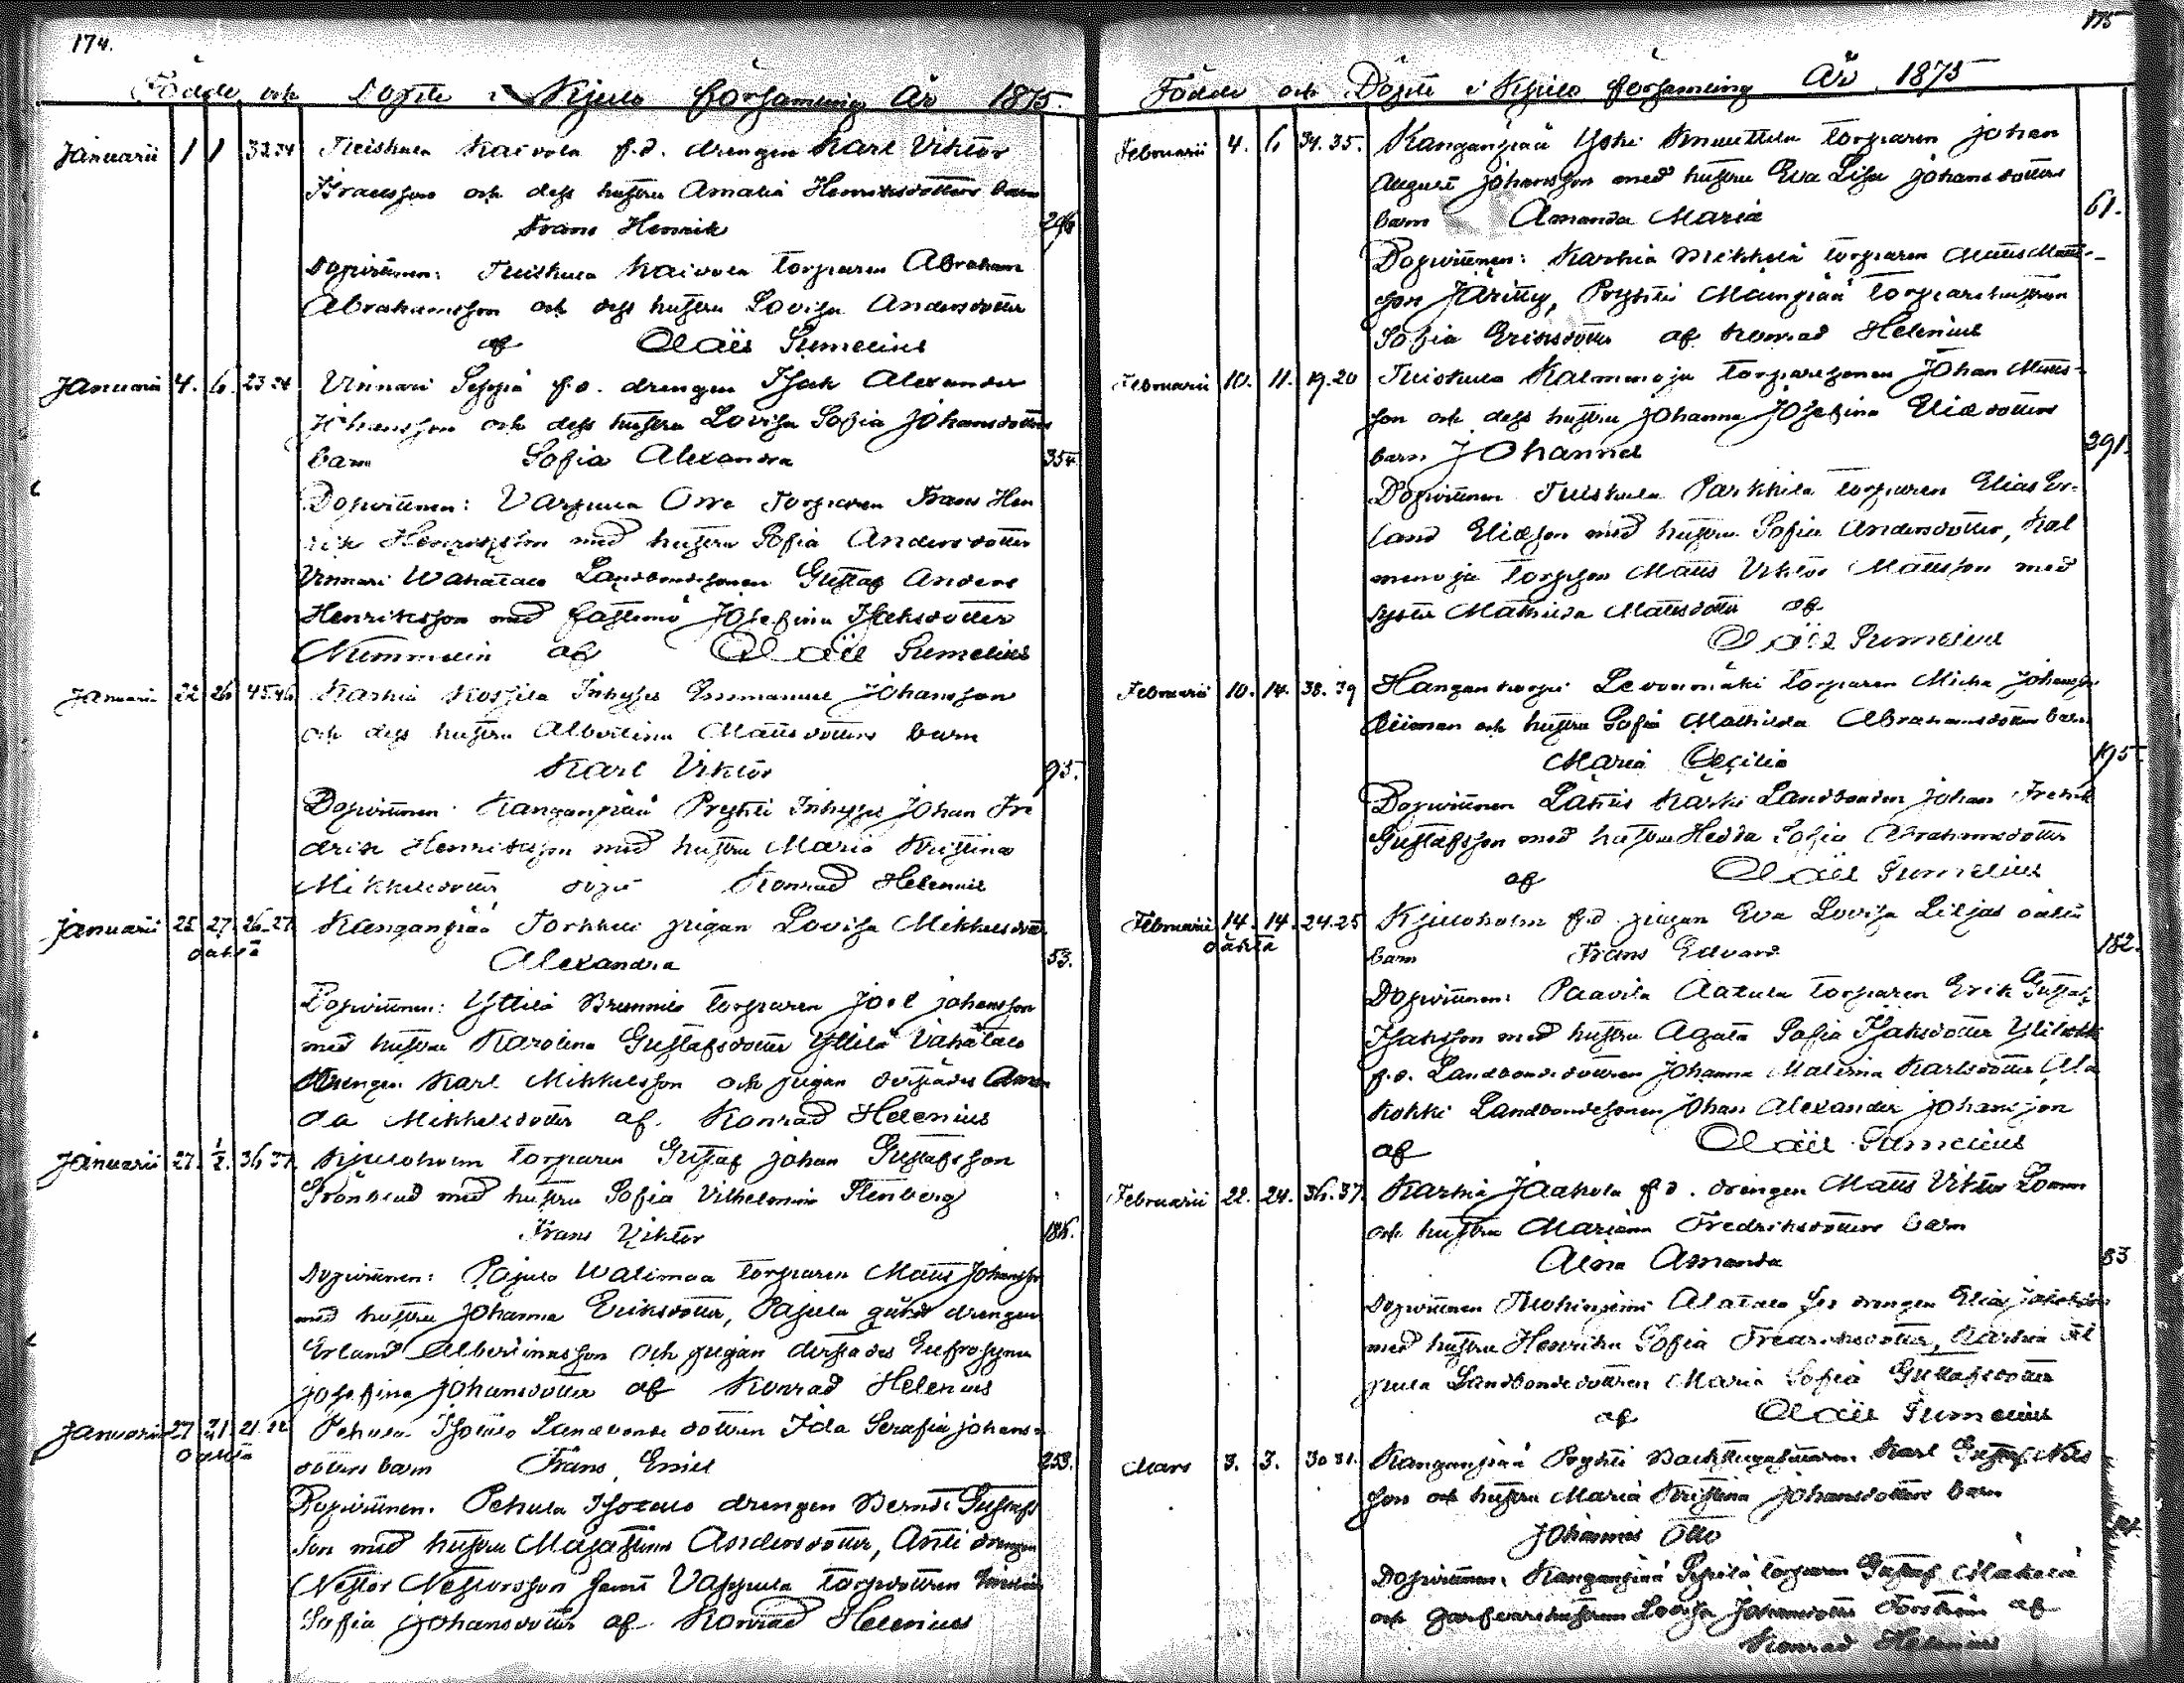 174.
Födde och Döpte i Kjulo församling År 1875.
Januarii 1 1 33.34 Tuiskula Kaivola f.d. drengen Karl Viktor
Israelsson och dess hustru Amalia Henriksdotters barn
Frans Henrik 296
Dopvittnen: Tuiskula Kaivola torparen Abraham
Abrahamsson och dess hustru Lovisa Andersdotter
af Olaii Sumelius
Januarii 4. 6. 23.24 Vinnari Seppä f.d. drengen Isak Alexander
Johansson och dess hustru Lovisa Sofia Johansdotters
barn Sofia Alexandra 354
Dopvittnen: Varpula Orre Torparen Frans Hen
rik Henriksson med hustru Sofia Andersdotter
Vinnari Wahatalo Landbondesonen Gustaf Anders
Henriksson med fästemö Josefina Isaksdotter
Nummelin af Olaii Sumelius
Januarii 22 26 45.46 Karhia Kospila Inhyses Emmanuel Johansson
och dess hustru Albertina Mattsdotters barn
Karl Viktor 93.
Dopvittnen Kanganpää Pryhti Inhyses Johan Fre
drik Henriksson med hustru Maria Kristina
Mikkelsdotter döpt Konrad Helenius
Januarii 25 27. 26.27 Kanganpää Torkkeli pigan Lovisa Mikkelsdotters
oäkta Alexandra 53.
Dopvittnen: Yttilä Brunnila torparen Joel Johansson
med hustru Karolina Gustafsdotter Yttilä Vähätalo
drengen Karl Mikkelsson och pigan derstädes Aman
da Mikkelsdotter af Konrad Helenius
Januarii 27. 1/2. 36 37. Kjuloholm torparen Gustaf Johan Gustafsson
Grönblad med hustru Sofia Vilhelmina Stenberg
Frans Viktor 186.
Dopvittnen: Pajula Walimaa torparen Matts Johansson
med hustru Johanna Eriksdotter, Pajula gårds drengen
Erland Albertinasson och pigan derstädes Eufrosyna
Josefina Johansdotter af Konrad Helenius
Januarii 27 31 21.22 Pehula Isotalo Landbonde dottren Ida Serafia Johans-
oäkta dotters barn Frans Emil 253.
Dopvittnen. Pehula Isotalo drengen Berndt Gustafs
son med hustru Majastina Andersdotter, Anti drengen
Nestor Nestorsson samt Vappula torpdottren
Sofia Johansdotter af Konrad Helenius
175
Födde och Döpte i Kjulo församling År 1875
Februarii 4. 6 34.35. Kanganpää Yski Knuuttila torparen Johan
August Johansson med hustru Eva Lisa Johansdotters
barn Amanda Maria 61.
Dopvittnen: Karhia Mikkola torparen Matts Matts-
son Järitty, Pryhtii Mäenpää torparehustrun
Sofia Eriksdotter af Konrad Helenius
Februarii 10. 11. 19.20 Tuiskula Kalmenoja torparesonen Johan Matts-
son och dess hustru Johanna Josefina Eliædotters
barn Johannes 291.
Dopvittnen Tuiskula Parkkila torparen Elias Er-
land Eliæson med hustru Sofia Andersdotter, Kal
menoja torpson Matts Viktor Mattsson med
syster Mathilda Mattsdotter af
Olaii Sumelius
Februarii 10. 14. 38.39 Levonmäki torparen Micka Johansson
och hustru Sofia Mathilda Abrahamsdotters barn
Maria Cecilia 195
Dopvittnen Lähteis Karki Landbonden Johan Fredrik
Gustafsson med hustru Hedda Sofia Abrahamsdotter
af Olaii Sumelius
Februarii 14. 14. 24.25 Kjuloholm f.d. pigan Eva Lovisa Liljas oäkta
oäkta barn Frans Edvard 182.
Dopvittnen: Paavila Aakula torparen Erik Gustaf
Isaksson med hustru Agata Sofia Isaksdotter
f.d. Landbondedottren Johanna Malvina Karlsdotter Ala
Kokki Landbondesonen Johan Alexander Johansson
af Olaii Sumelius
Februarii 22. 24. 36.37. Karhia Jaakola f.d. drengen Matts Viktor
och hustru Mariana Fredriksdotters barn
Alma Amanda 83
Dopvittnen Alatalo drengen Elias
med hustru Henrika Sofia Fredriksdotter, Karhia
Landbondedottren Maria Sofia Gustafsdotter
af Olaii Sumelius
Mars 3. 3. 30 31. Kanganpää Pryhti Backstugusittaren Karl Gustaf Nils
son och hustru Maria Kristina Johansdotters barn
Johannes Otto
Dopvittnen: Kanganpää Seppälä torparen Gustaf Mäkelä
och hustrun Lovisa Johansdotter af
Konrad Helenius